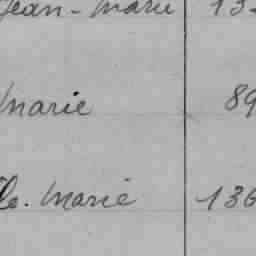 Jean-Marie 13
Marie 89
Marie 136